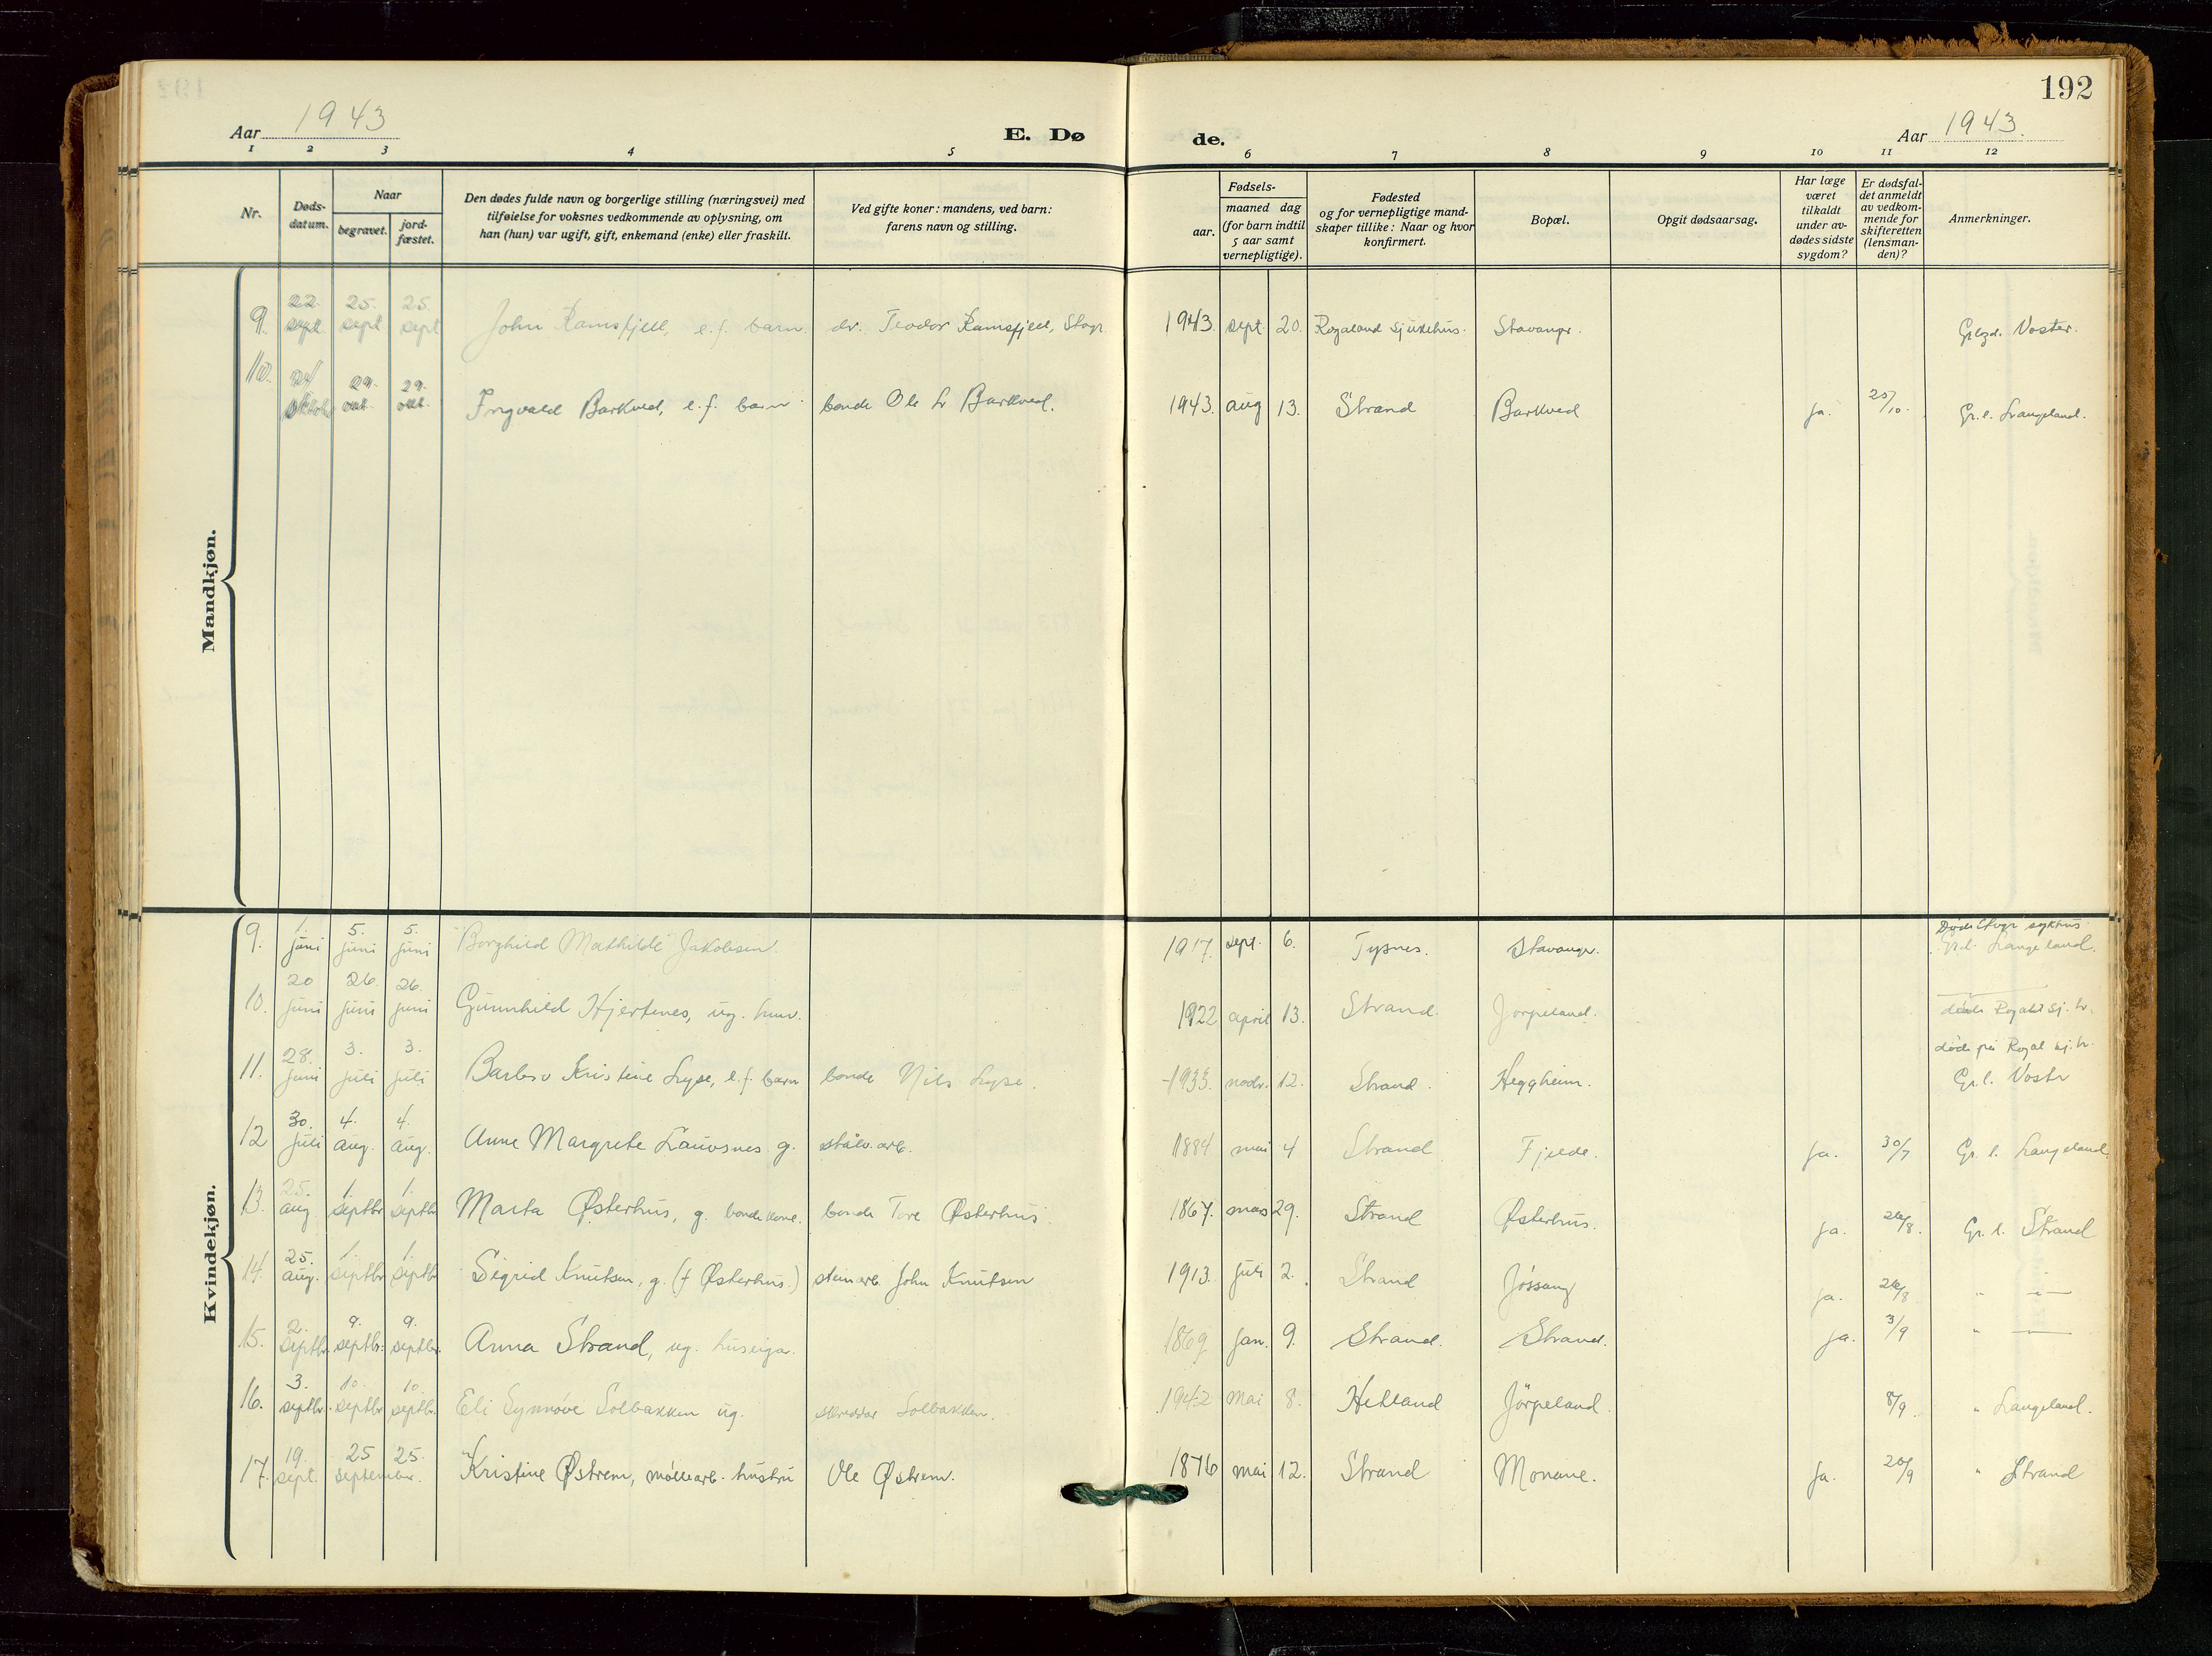 192
Aar 1943
E. Dø de.
Aar 1943.
1 2 3 4 5 6 7 8 9 10 11 12
Nr.
Døds-
datum.
Naar
begravet.
jord-
fæstet.
Den dødes fulde navn og borgerlige stilling (næringsvei) med
tilføielse for voksnes vedkommende av oplysning, om
han (hun) var ugift, gift, enkemand (enke) eller fraskilt.
Ved gifte koner: mandens, ved barn:
farens navn og stilling.
Fødsels-
aar.
maaned dag
(for barn indtil
5 aar samt
vernepligtige).
Fødested
og for vernepligtige mand-
skaper tillike: Naar og hvor
konfirmert.
Bopæl.
Opgit dødsaarsag.
Har læge
været
tilkaldt
under av-
dødes sidste
sygdom?
Er dødsfal-
det anmeldt
av vedkom-
mende for
skifteretten
(lensman-
den)?
Anmerkninger.
Mandkjøn.
9. 22. sept. 25. sept 25. sept John Ramsfjell, e.f. barn. dr. Teodor Ramsfjell, Stvgr 1943. sept. 20. Rogaland sjukehus. Stavanger. Voster.
10. 24/ oktob 29. okt. 29. okt. Ingvald Barkved, e.f. barn bonde Ole Barkved. 1943. aug 13. Strand Barkved ja. 25/10. Gr. l. Langeland.
Kvindekjøn.
9. 1. juni 5. juni 5. juni Borghild Mathilde Jakobsen. 1917. sept. 6. Tysnes. Stavanger. Døde Stvgr sykhus Gr.l. Langeland.
10. 20 juni 26. juni 26. juni Gunnhild Hjertenes, ug. 1922 april 13. Strand. Jørpeland. døde Rogald sj. h.
11. 28. juni 3. juli 3. juli Kristine Lyse, e.f. barn bonde Nils Lyse. 1933. novbr. 12. Strand. Heggheim. døde på Rogal sj. h. Gr. l. Vostr
12 30. juli 4. aug. 4. aug. Anne Margrete Lauvsnes g. stålv. arb. 1884 mai 4 Strand Fjelde. ja. 30/7 Gr. l. Langeland.
13. 25. aug. 1. septbr 1. septbr Marta Østerhus, g. bondekone. bonde Tore Østerhus. 1867. mars 29. Strand Østerhus. ja. 26/8. Gr. l. Strand
14. 25. aug. 1. septbr 1. septbr Sigrid Knutsen, g. (f Østerhus.) steinarb. John Knutsen 1913. juli 2. Strand Jøssang ja. 26/8 " —"—
15. 2. septbr. 9. septbr. 9. septbr. Anna Strand, ug. huseigar. 1869 jan. 9. Strand. Strand. ja. 3/9 " —
16. 3. septbr. 10. septbr 10. septbr. Eli Synnøve Solbakken ug. skreddar Solbakken. 1942 mai 8. Hetland Jørpeland. 8/9. " Langeland.
17. 19. sept. 25 25. september. Kristine Østrem, møllearb. hustru Ole Østrem. 1876 mai 12. Strand Monane. ja. 20/9 " Strand